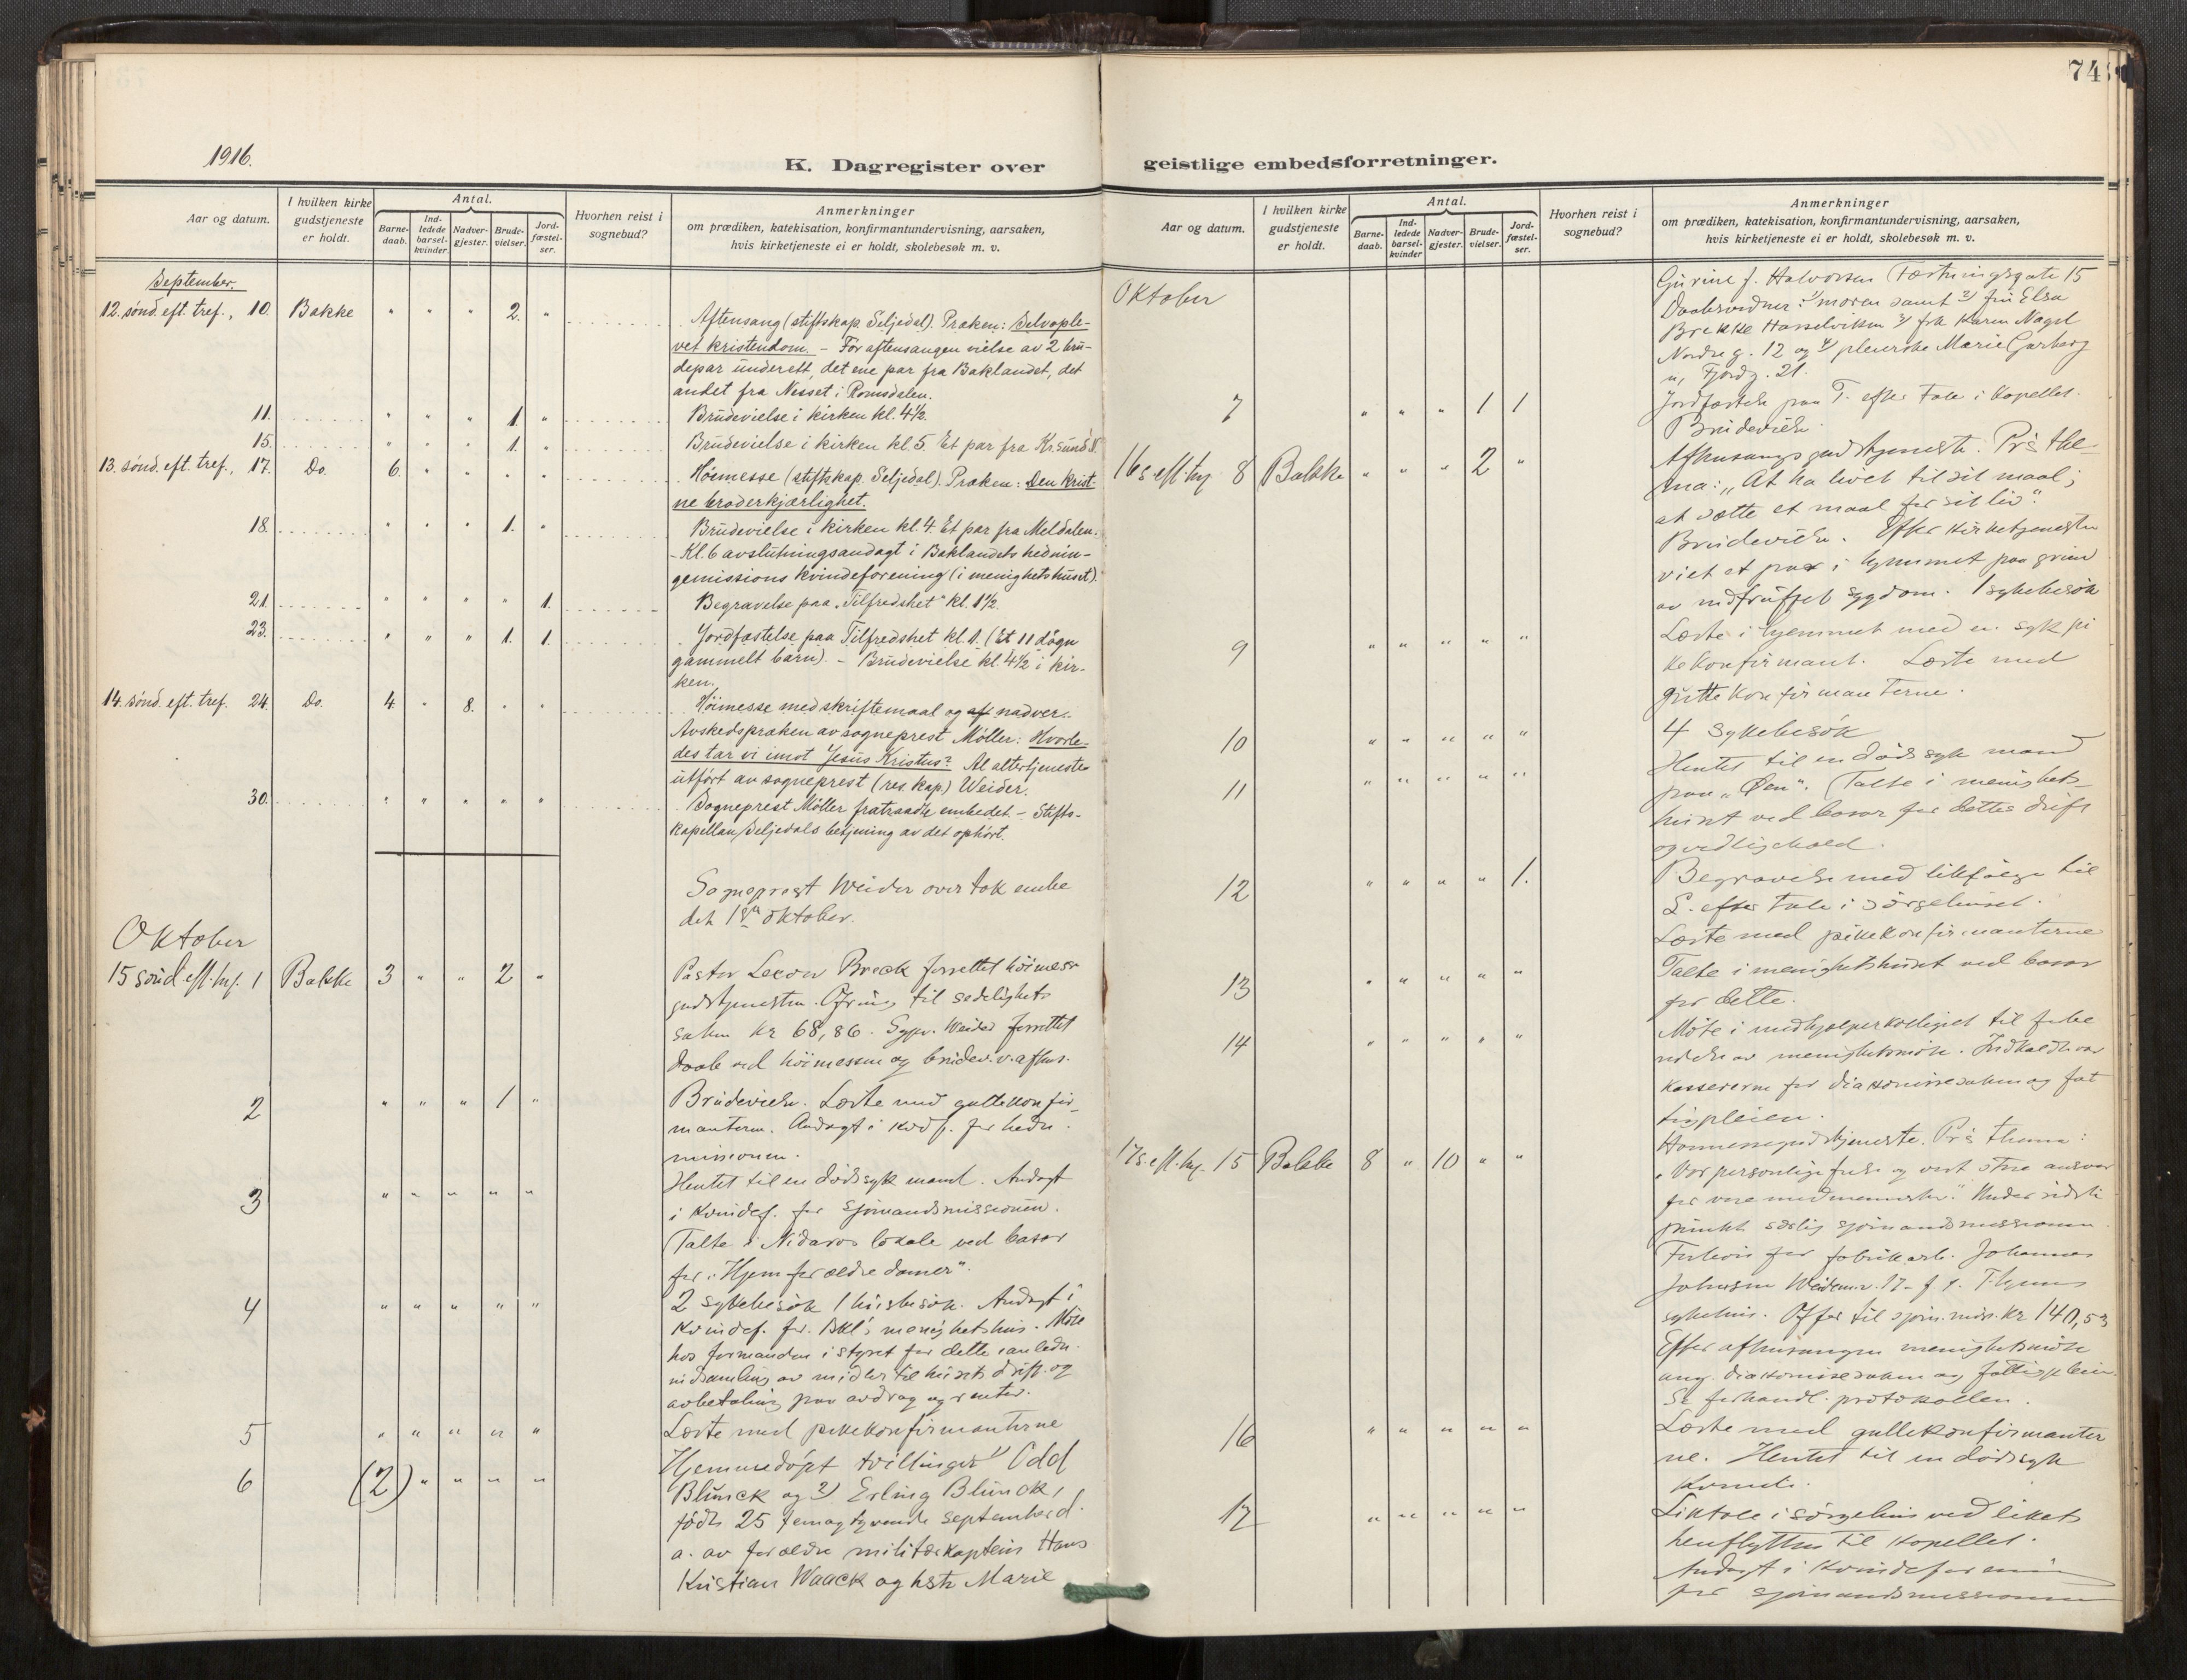 74
1916.
K. Dagregister over geistlige embedsforretninger.
Aar og datum.
I hvilken kirke gudstjeneste er holdt.
Antal.
Barne-daab.
Ind-ledede barsel-kvinder.
Nadver-gjester.
Brude-vielser.
Jord-fæstel-ser.
Hvorhen reist i sognebud?
Anmerkninger
om prædiken, katekisation, konfirmantundervisning, aarsaken,
hvis kirketjeneste ei er holdt, skolebesøk m. v.
September.
12. sønd. eft. tref., 10. Bakke " " " 2. "
Aftensang (stiftskap. Seljedal). Præken: Selvople-
vet kristendom. – Før aftensangen vielse av 2 bru-
depar underett, det ene par fra Baklandet, det
andet fra Nesset i Romsdalen.
11. " " " 1. " Brudevielse i kirken kl. 4½.
15. " " " 1. " Brudevielse i kirken kl. 5. Et par fra Kr.sund N.
13. sønd. eft. tref., 17. Do. 6. " " " " Høimesse (stiftskap. Seljedal). Præken: Den krist-
ne broderkjærlighet.
18. " " " 1. " Brudevielse i kirken kl. 4. Et par fra Meldalen.
– Kl. 6 avslutningsandagt i Baklandets hednin-
gemissions kvindeforening (i menighetshuset).
21. " " " " 1. Begravelse paa „Tilfredshet" kl. 1½.
23. " " " 1. 1. Jordfæstelse paa Tilfredshet kl. 1. (Et 11 døgn
gammelt barn). – Brudevielse kl. 4½ i kir-
ken.
14. sønd. eft. tref. 24. Do. 4. " 8. " " Høimesse med skriftemaal og af nadver.
Avskedspræken av sogneprest Møller: Hvorle-
des tar vi imot Jesus Kristus? Al altertjeneste
utført av sogneprest (res. kap.) Weider.
30. " " " " " Sogneprest Møller fratraadte embedet. – Stifts-
kapellan Seljedals betjening av det ophørt.
Sogneprest Weider overtok embe
det 1ste oktober.
Oktober
15 sønd eft. tref. 1 Bakke 3 " " 2 "
Pastor Brock forrettet høimesse
gudstjenesten. Ofring til sedeligheds
saken kr 68,86. Sgpr. Weider forrettet
daab ved høimessen og brudev. v. aftens.
2 " " " 1 " Brudevielse. Læste med guttekonfir-
manterne. Andagt i kvdf. for hedn.
missionen.
3 " " " " " Hentet til en dødssyk mand. Andagt
i kvindef. for Sjømandsmissionen.
Talte i Nidaros lokale ved basar
for „Hjem for ældre damer".
4 " " " " " 2 sykebesøk 1 husbesøk. Andagt i
kvindef. for Bkl's menighetshus. Møte
hos formanden i styret for dette i anledn.
indsamling av midler til husets drift og
avbetaling paa avdrag og renter.
5 " " " " " Læste med pikekonfirmanterne
6 (2) " " " " Hjemmedøpt tvillinger 1) Odd
Blunck og 2) Erling Blunck,
født 25 femogtyvende september d.
a. av forældre militærkaptein Hans
Kristian Waack og hstr Marie
Aar og datum.
I hvilken kirke gudstjeneste er holdt.
Antal.
Barne-daab.
Ind-ledede barsel-kvinder
Nadver-gjester.
Brude-vielser.
Jord-fæstel-ser.
Hvorhen reist i sognebud?
Anmerkninger
om prædiken, katekisation, konfirmantundervisning, aarsaken,
hvis kirketjeneste ei er holdt, skolebesøk m. v.
Oktober
Gurine f. Halvorsen Fæstningsgate 15
Daabsvidner: 1) moren samt 2) fru Elsa
Brekke Hasselviken 3) frk Karen Nagel
Nordre g. 12 og 4) pleierske Marie Garberg
Fjordg. 21.
7 " " " 1 1 Jordfæstelse paa T. efter tale i kapellet.
Brudevielse.
16 s. eft. tref. 8 Bakke " " " 2 "
Aftensangsgudstjeneste. Pr's the
ma: „At ha livet til sit maal;
at sætte et maal for sit liv".
Brudevielse. Efter kirketjenesten
viet et par i hjemmet paa grund
av indtruffet sygdom. 1 sykebesøk
9 " " " " " Læste i hjemmet med en syk pi
kekonfirmant. Læste med
guttekonfirmanterne.
10 " " " " " 4 sykebesøk
11 " " " " " Hentet til en dødssyk mand
paa „Øen". Talte i menighets-
huset ved basar for dettes drift
og vedlikehold.
12 " " " " 1. Begravelse med likfølge til
L. efter tale i sørgehuset.
Læste med pikekonfirmanterne
13 " " " " " Talte i menighetshuset ved basar
for dette.
14 " " " " " Møte i medhjælperkollegiet til forbe
redelse av menighetsmøte. Indkaldt var
kassererne for diakonissesaken og fat
tigpleien.
17 s. eft. tref. 15 Bakke 8 " 10 " "
Høimessegudstjeneste. Pr's thema:
„Vor personlige frelse og vort store ansvar
for vore medmennesker." Under sidste
punkt særlig sjømandsmissionen.
Forbøn for fabrikarb. Johannes
Johnsen Weidem.v. 17
sykehus. Offer til sjøm. miss. kr 140,53
Efter aftensangen menighetsmøte
ang. diakonissesaken og fattigpleien.
Se forhandl. protokollen.
16 " " " " " Læste med guttekonfirmanter
ne. Hentet til en dødssyk
kvinde.
17 " " " " " Liktale i sørgehus ved likets
henflytten til kapellet.
Andagt i kvindeforening
for sjømandsmissionen